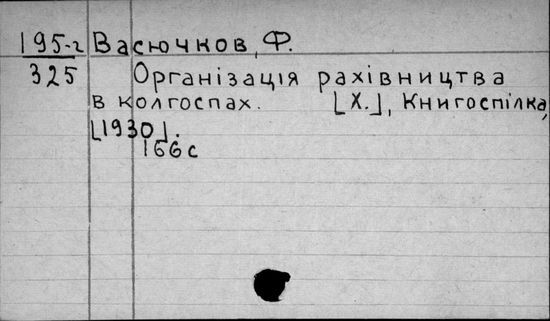 195-г Васючков, Ф.
325 Організація рахівництва
в колгоспах. [Х.], Книгоспілка,
[1930].
166 с